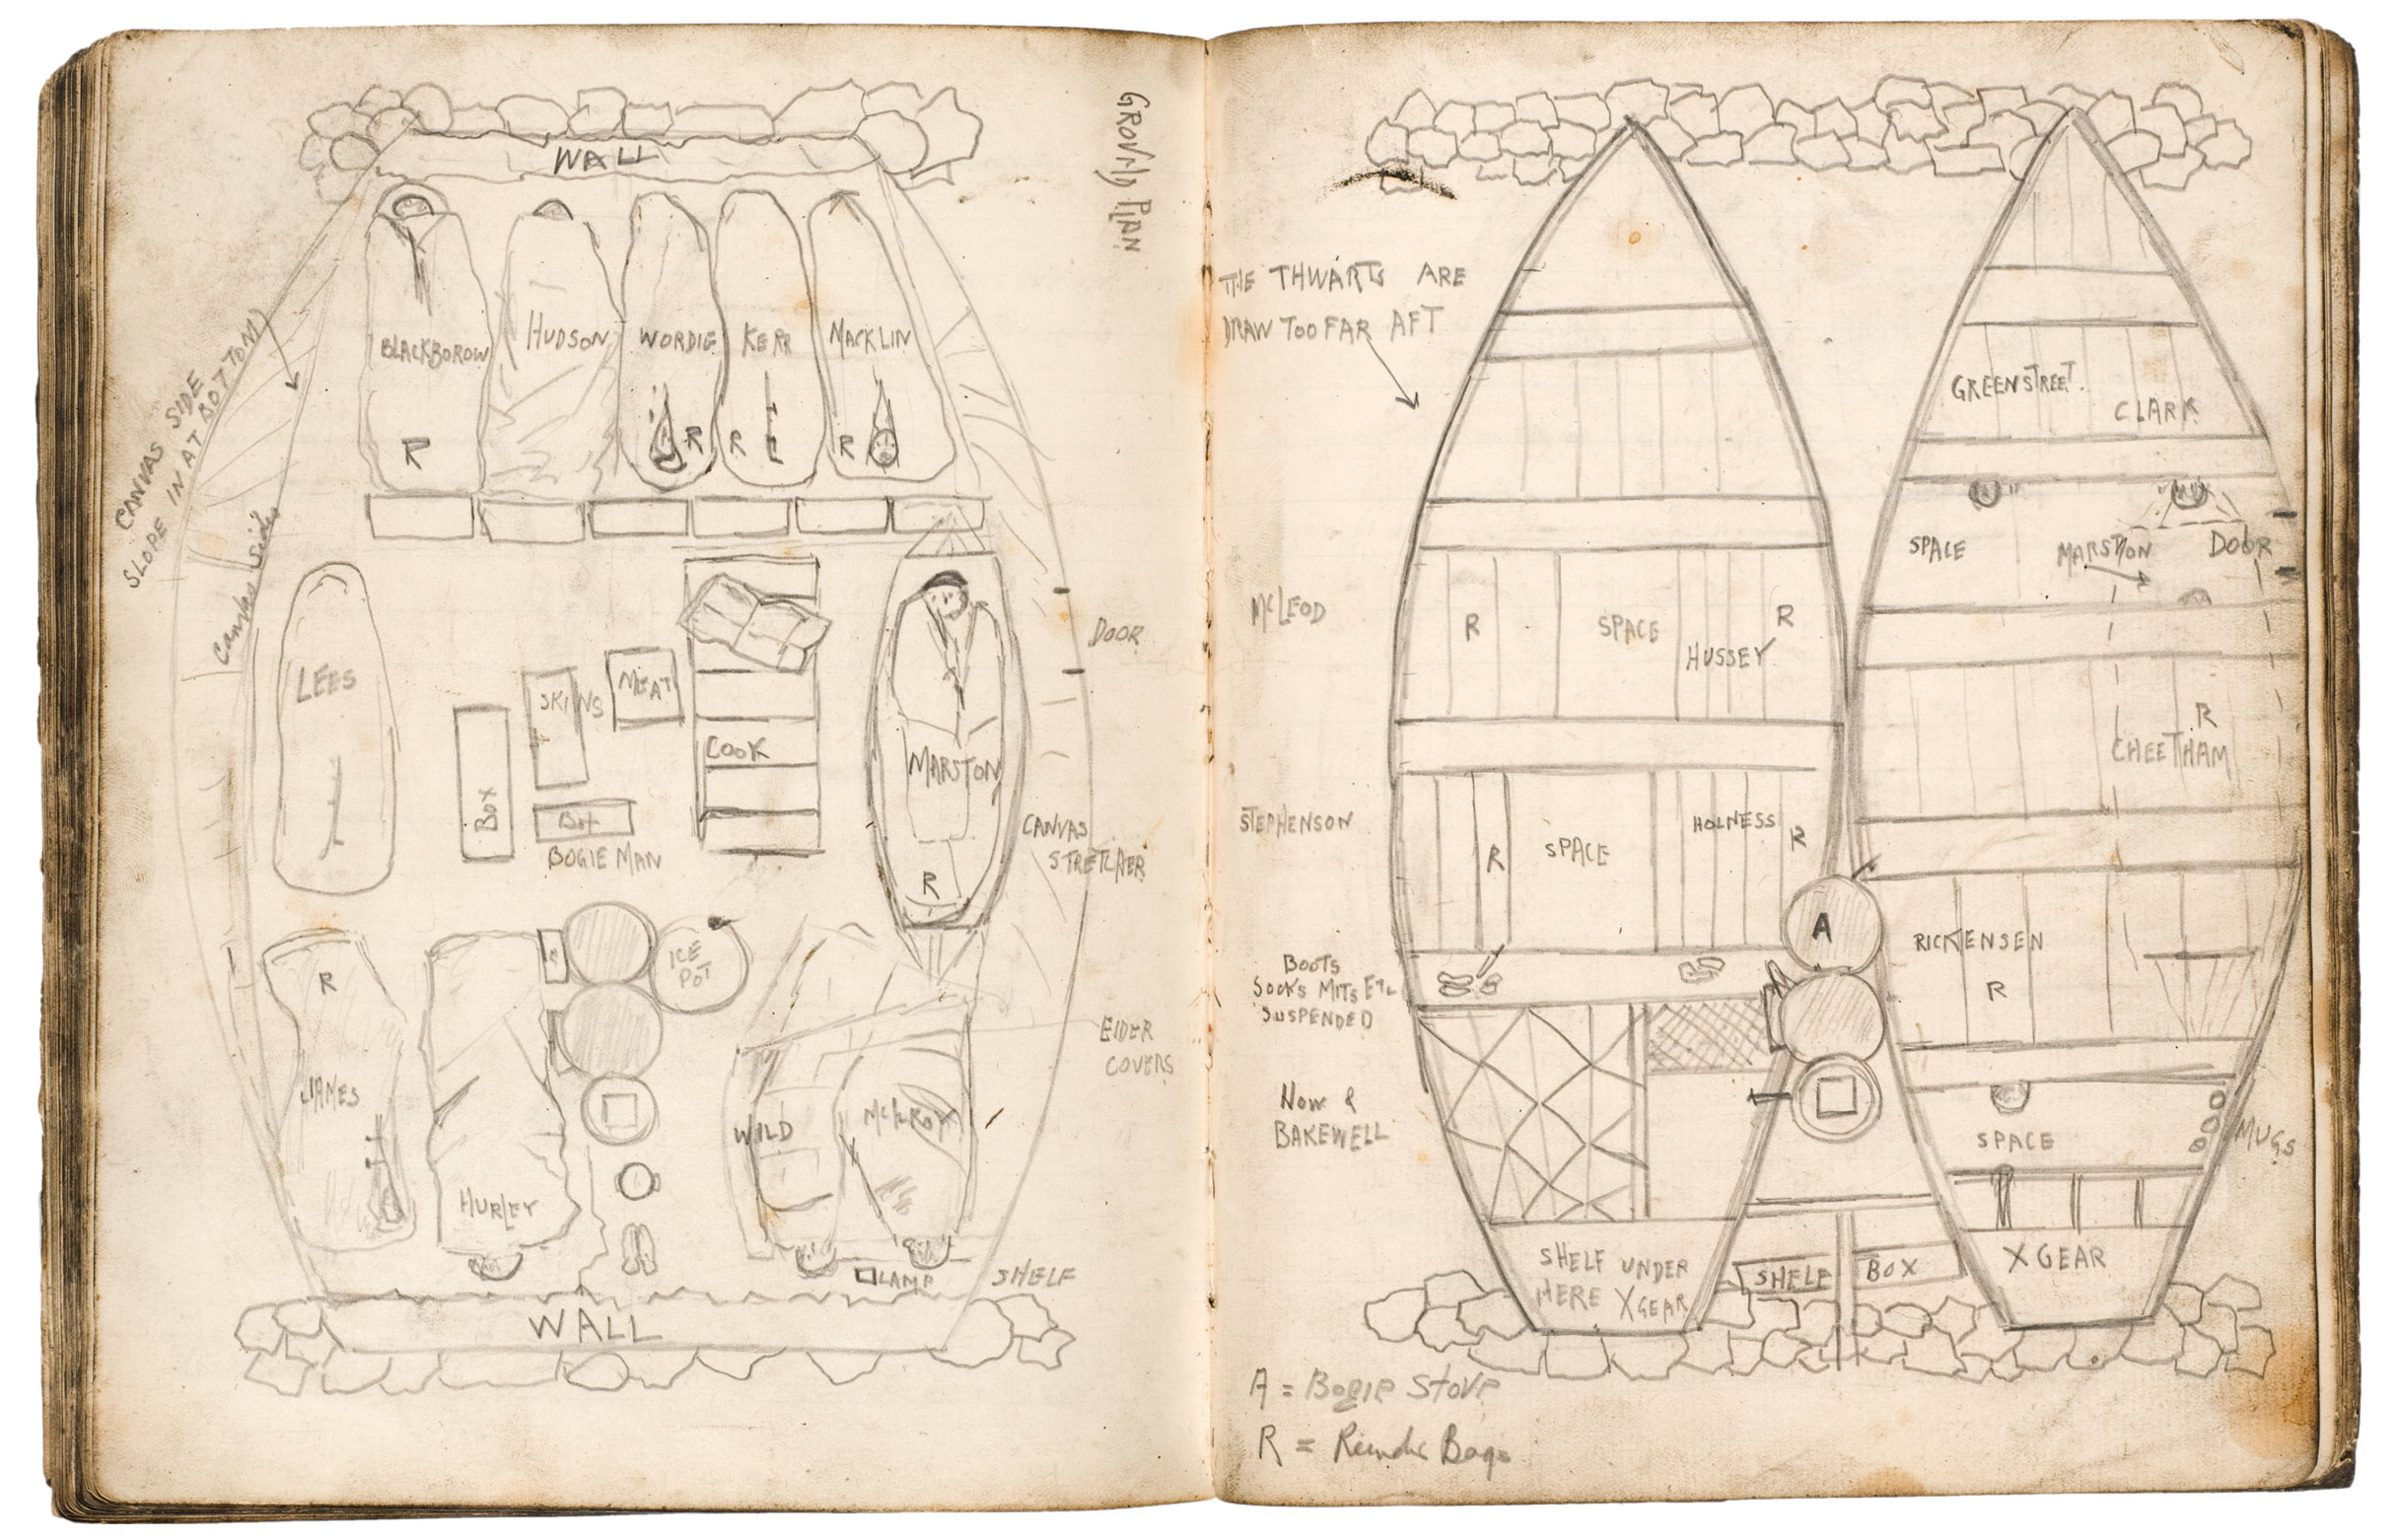 GROUND PLAN
WALL
CANVAS SIDE
SLOPE IN AT BOTTOM)
Canvas Side
BLACKBOROW
HUDSON
WORDIE
KERR
MACKLIN
R
R
R
R
LEES
BOX
SKINS
MEAT
BOX
BOGIE MAN
COOK
MARSTON
R
DOOR
CANVAS
STRETCHER
R
JAMES
HURLEY
ICE
POT
WILD
McILROY
EIDER
COVERS
LAMP
SHELF
WALL
THE THWARTS ARE
DRAW TOO FAR AFT
McLEOD
R
SPACE
HUSSEY
R
STEPHENSON
R
SPACE
HOLNESS
R
BOOTS
SOCKS MITS ETC
SUSPENDED
HOW &
BAKEWELL
SHELF UNDER
HERE X GEAR
A
SHELF
BOX
GREENSTREET.
CLARK
SPACE
MARSTON
DOOR
R
CHEETHAM
RICKENSEN
R
SPACE
MUGS
X GEAR
A = Bogie Stove
R = Reindr Bags